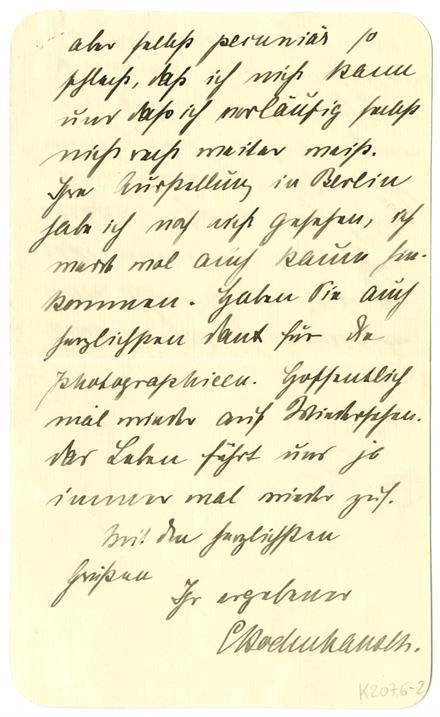 aber selbst pecuniär so
schlecht, daß ich nicht kann
und daß ich vorläufig selbst
nicht recht weiter weiß.
Ihre Ausstellung in Berlin
habe ich noch nicht gesehen, ich
werde wol auch kaum hin-
kommen. Haben Sie auch
herzlichsten Dank für die
Photographieen. Hoffentlich
mal wieder auf Wiedersehen.
das Leben führt uns ja
immer mal wieder zus.
Mit den herzlichsten
Grüßen
Ihr ergebener
CRodenhausen.
K2076-2